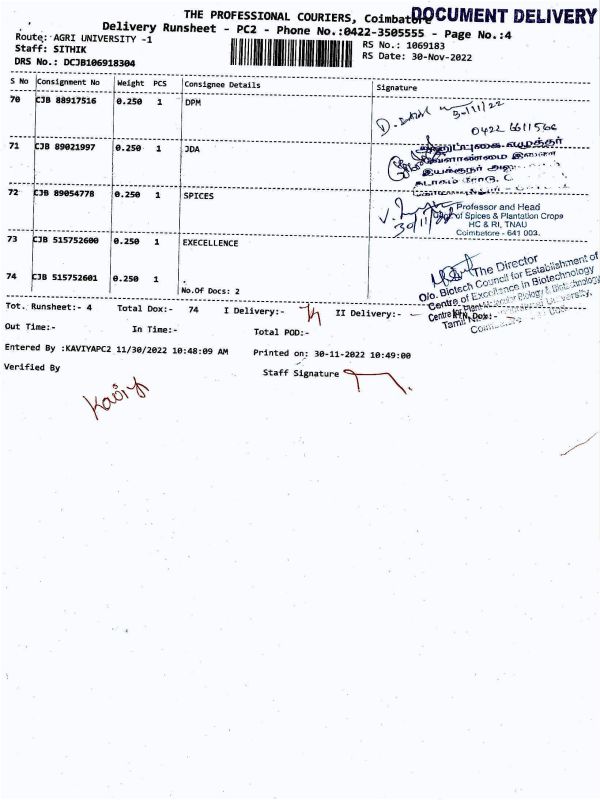 THE PROFESSIONAL COURIERS, Coimbatore
DOCUMENT DELIVERY
Delivery Runsheet - PC2 - Phone No.:0422-3505555 - Page No.:4
Route: AGRI UNIVERSITY -1
RS No.: 1069183
Staff: SITHIK
RS Date: 30-Nov-2022
DRS No.: DCJB106918304
S No Consignment No Weight PCS Consignee Details Signature
70 CJB 88917516 0.250 1 DPM
30/11/22
0422 6611566
71 CJB 89021997 0.250 1 JDA
72 CJB 89054778 0.250 1 SPICES
30/11/22
Professor and Head
of Spices & Plantation Crops
HC & RI, TNAU
Coimbatore - 641 003.
73 CJB 515752600 0.250 1 EXECELLENCE
74 CJB 515752601 0.250 1 .
No.Of Docs: 2
The Director
O/o. Biotech Council for Establishment of
Centre of Excellence in Biotechnology
Centre for Plant Molecular Biology & Biotechnology
Tamil University,
Tot. Runsheet:- 4 Total Dox:- 74 I Delivery:- II Delivery:- Dox:-
Out Time:- In Time:- Total POD:-
Entered By :KAVIYAPC2 11/30/2022 10:48:09 AM Printed on: 30-11-2022 10:49:00
Verified By Staff Signature
Kaviya